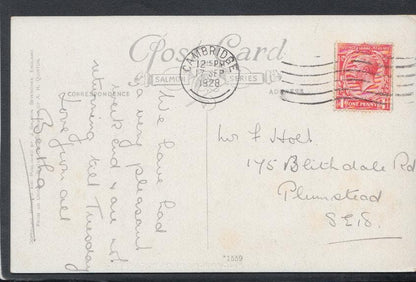 Post Card
SALMON SERIES
CORRESPONDENCE
ADDRESS
CAMBRIDGE
12 15 PM
17 SEP
1928
ONE PENNY
We have had
a very pleasant
weekend & are not
returning till Tuesday
Love from all
Bertha
F Holt.
175 Blithdale Rd
Plumstead
S.E.18.
*1559